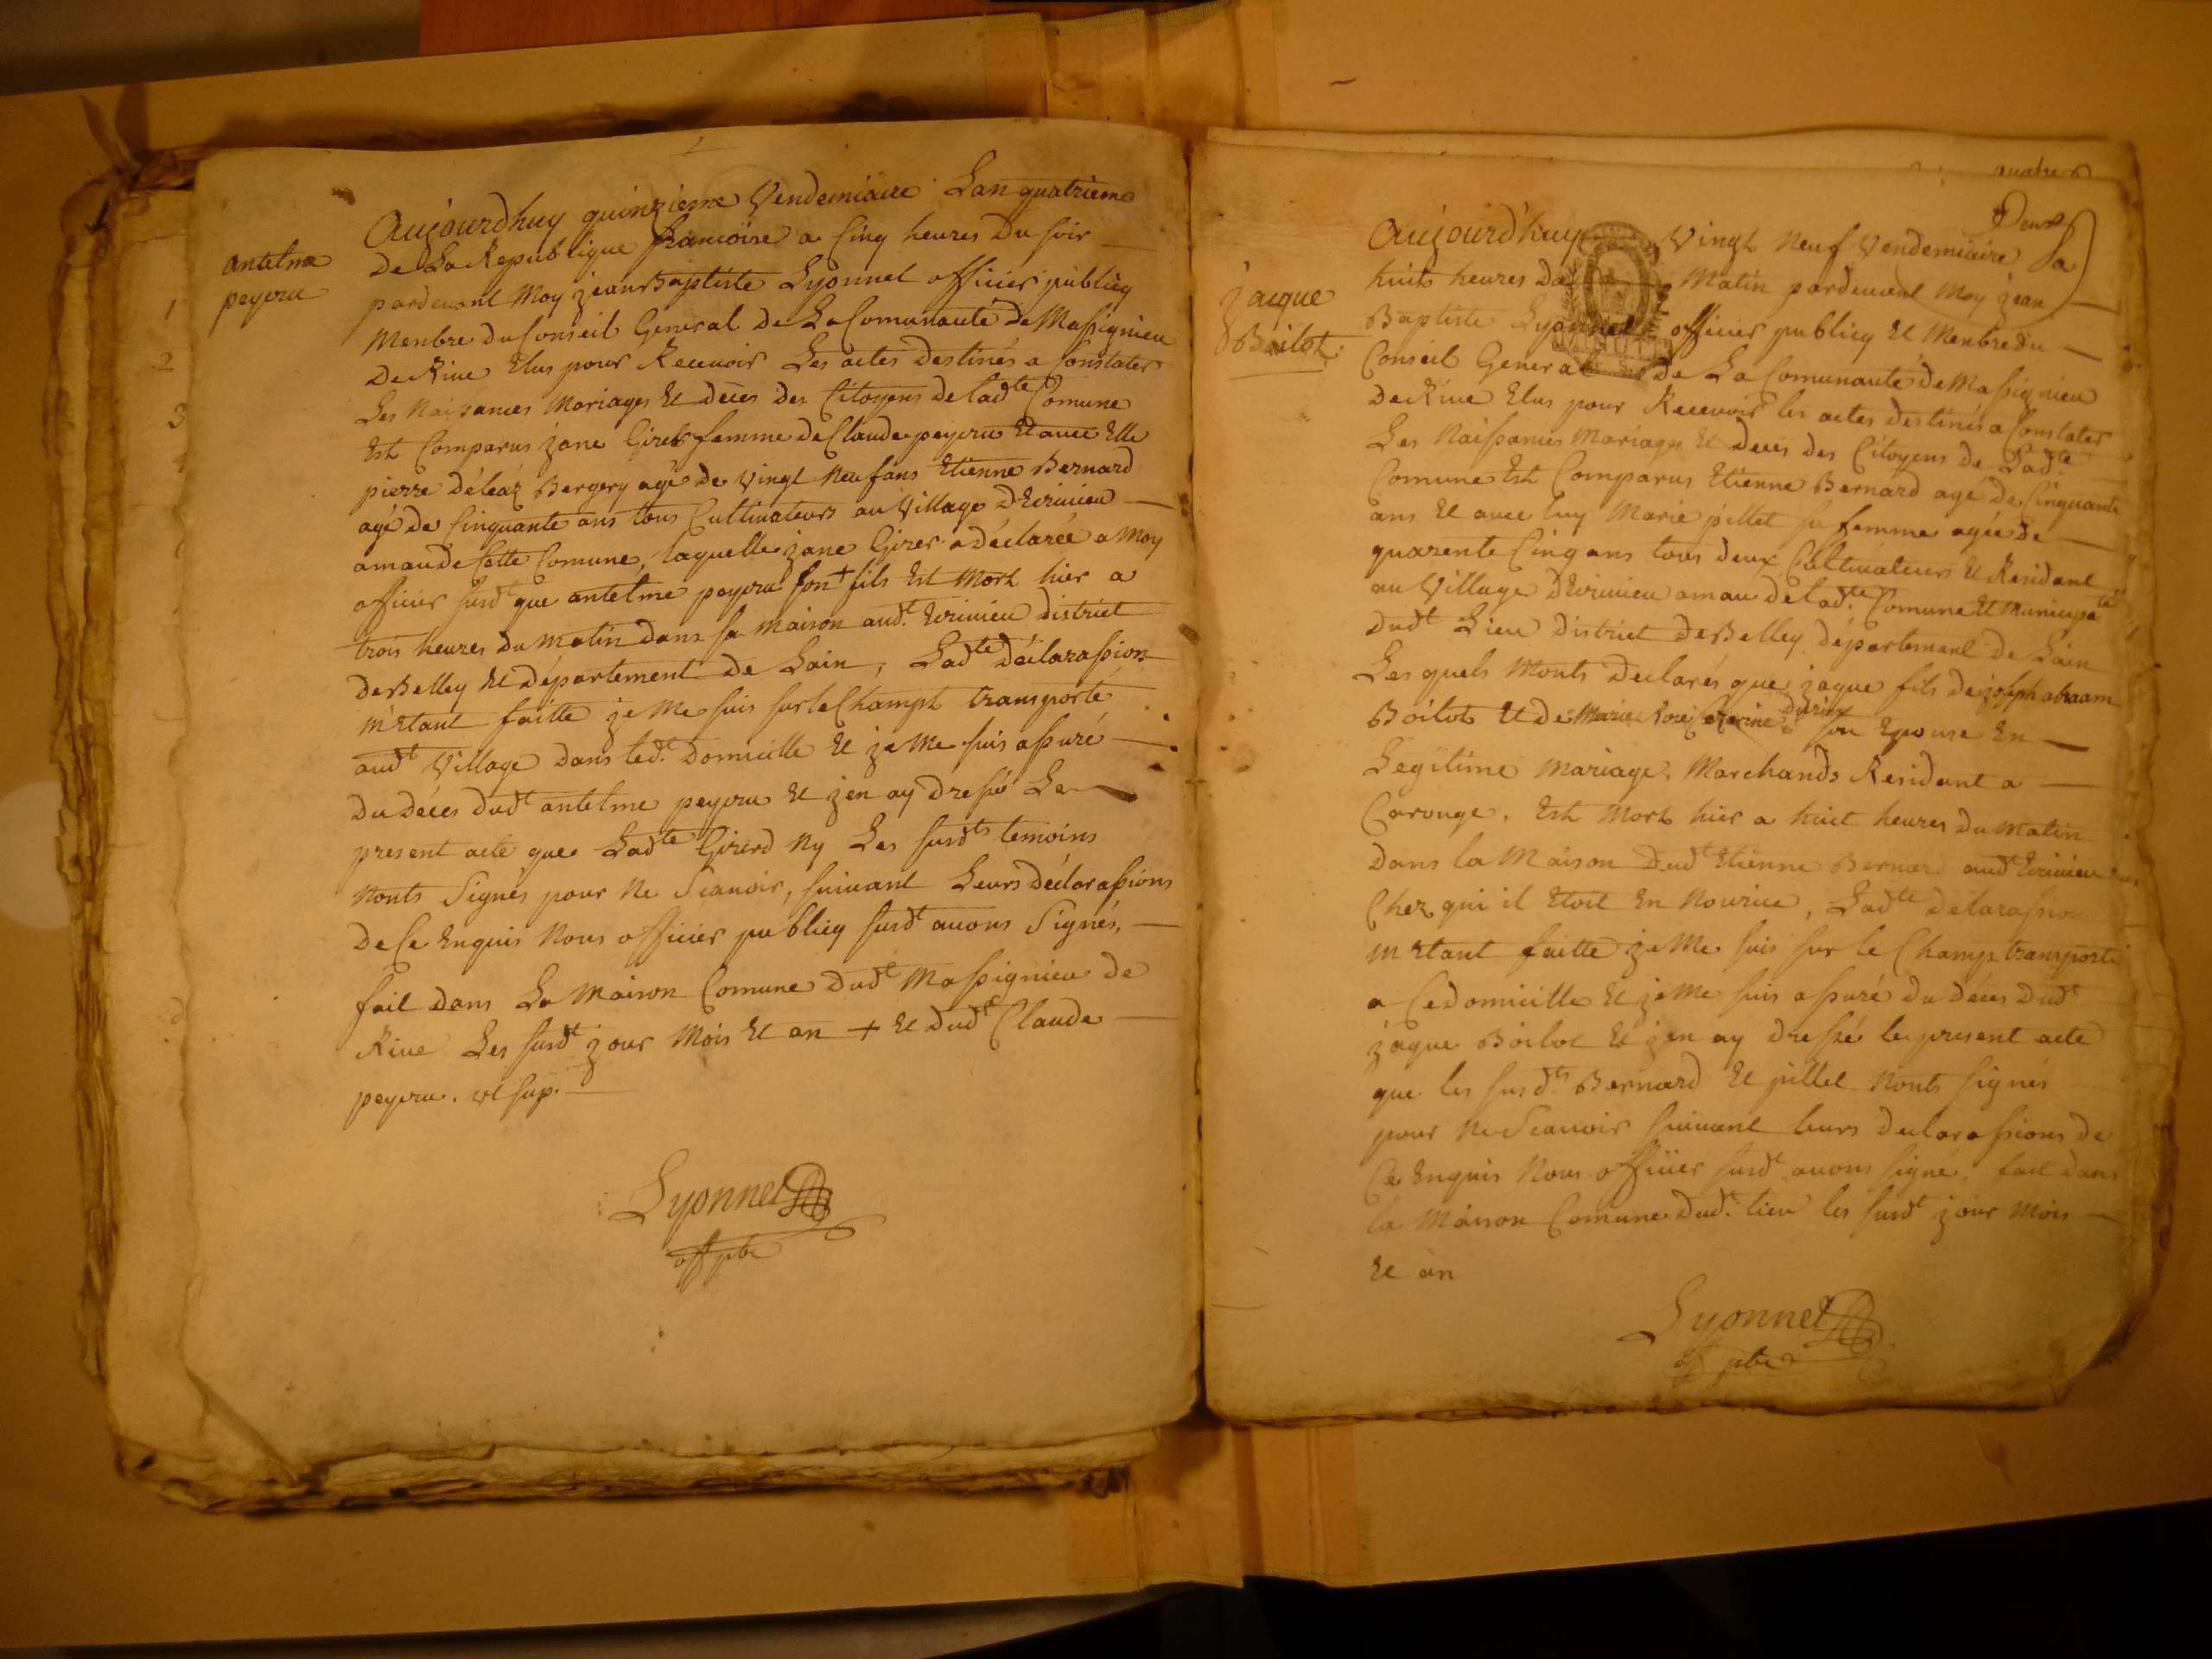 antelme
peycru
Aujourdhuy quinzieme Vendemiaire Lan quatrieme
de La Republique francoise a Cinq heures du soir
pardevant Moy jean Baptiste Lyonnet officier publicq
Menbre du Conseil General de La Comunauté de Massignieu
de Rive Elus pour Recevoir Les actes destinés a Constater
Les Naissances Mariages Et déces des Citoyens de ladte Comune
Est Comparus jane Girer femme de Claude peycru Et avec Elle
pierre déléaz Bergery agé de vingt Neuf ans Etienne Bernard
agé de Cinquante ans tous Cultivateurs au Village dEcrivieu
amau de Cette Comune, laquelle jane Girer a déclarée a Moy
officier susdt que antelme peycru son + fils Est Mort hier a
trois heures du matin dans sa maison audt. Ecrivieu district
de Belley Et département de Lain, Ladte déclarassion
instant faitte je Me suis sur le Champt transporté
audt Village dans ledt. Domicille Et je Me suis assuré
du déces dudt antelme peycru Et jen ay dressé Le
present acte que Ladte Girerd Ny Les susdts temoins
Nonts Signés pour Ne Scavoir, suivant Leurs déclarassions
de Ce Enquis Nous officier publicq susdt avons Signés,
fait dans La Maison Comune dudt Massignieu de
Rive Les susdt jour Mois Et an + Et dudt Claude
peycru. vt sup.
Lyonnet
off pbc
quatre
Deux
jacque
Boilot.
Aujourdhuy Vingt Neuf Vendemiaire a
huits heures du Matin pardevant Moy jean
Baptiste Lyonnet officier publicq Et Menbre du
Conseil General de La Comunauté de Massignieu
de Rive Elus pour Recevoir les actes destinés a Constater
Les Naissances Mariages Et deces des Citoyens de Ladte
Comune Est Comparus Etienne Bernard agé de Cinquante
ans Et avec luy Marie pillet sa femme agée de
quarente Cinq ans tous deux Cultivateurs Et Residant
au Village dEcrivieu amau de ladte. Comune Et Municipaté
dudt Lieu district de Belley département de Lain
Les quels Monts declarés que jaque fils de joseph abraam
Boilot Et de Marie Rose son Epouse En
Legitime Mariage, Marchands Residant a
Carouge. Est Mort hier a huit heures du Matin
dans la Maison Dudt Etienne Bernard audt Ecrivieu
Chez qui il Etoit En Nourice, Ladte delarassion
instant faitte je Me suis sur le Champ transporté
a Ce domicille Et je Me suis assuré du déces dudt
jaque Boilot Et jen ay dressé le present acte
que les susdts Bernard Et pillet Nonts signés
pour Ne Scavoir suivant leurs declarassions de
Ce Enquis Nous officier susdt avons signé, fait dans
la Maison Comune dudt. lieu les susdt jour Mois
Et an
Lyonnet
of pbc